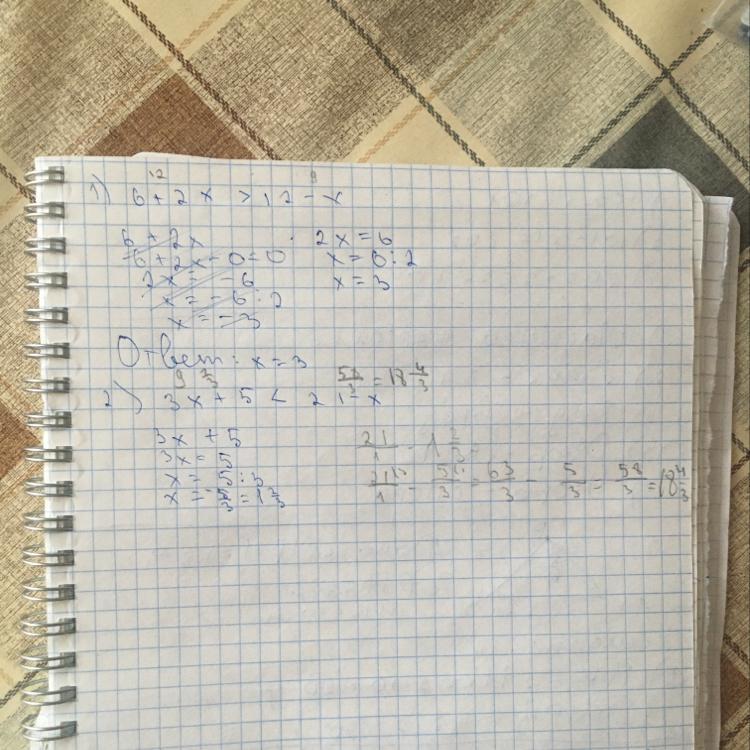 12 9
1) 6 + 2x > 12 - x
6 + 2x
-6 + 2x - 0 = 0
2x = -6
x = -6 : 2
x = -3
2x = 6
x = 6 : 2
x = 3
Ответ: x = 3
9 2/3 58/3 = 18 4/3
2) 3x + 5 < 21 - x
3x + 5
3x = 5
x = 5 : 3
x = 5/3 = 1 2/3
21/1 - 1 2/3
21/1 - 5/3 = 63/3 - 5/3 = 58/3 = 18 4/3